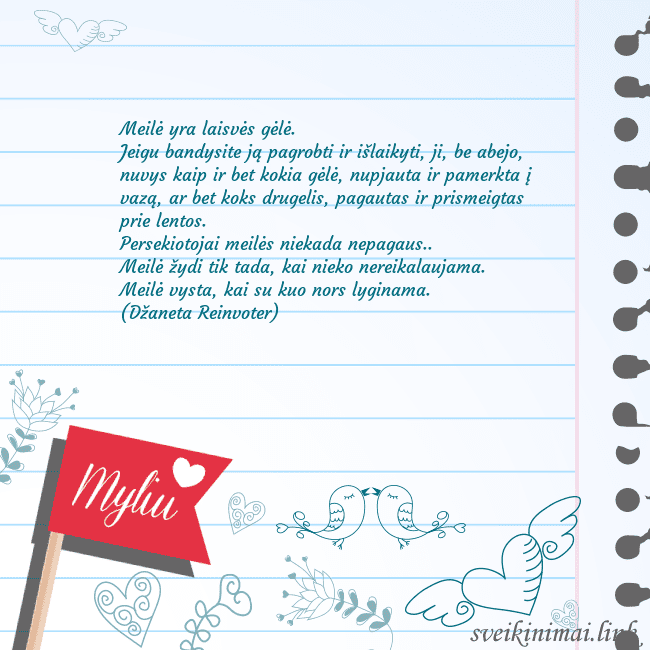 Meilė yra laisvės gėlė.
Jeigu bandysite ją pagrobti ir išlaikyti, ji, be abejo,
nuvys kaip ir bet kokia gėlė, nupjauta ir pamerkta į
vazą, ar bet koks drugelis, pagautas ir prismeigtas
prie lentos.
Persekiotojai meilės niekada nepagaus..
Meilė žydi tik tada, kai nieko nereikalaujama.
Meilė vysta, kai su kuo nors lyginama.
(Džaneta Reinvoter)
Myliu
sveikinimai.link